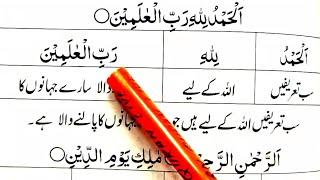 اَلْحَمْدُ لِلّٰهِ رَبِّ الْعٰلَمِيْنَ○
اَلْحَمْدُ لِلّٰهِ رَبِّ الْعٰلَمِيْنَ
سب تعریفیں اللہ کے لیے والا سارے جہانوں کا
سب تعریفیں اللہ کے لیے ہیں جو جہانوں کا پالنے والا ہے۔
اَلرَّحْمٰنِ الرَّحِ مٰلِكِ يَوْمِ الدِّيْنِ○